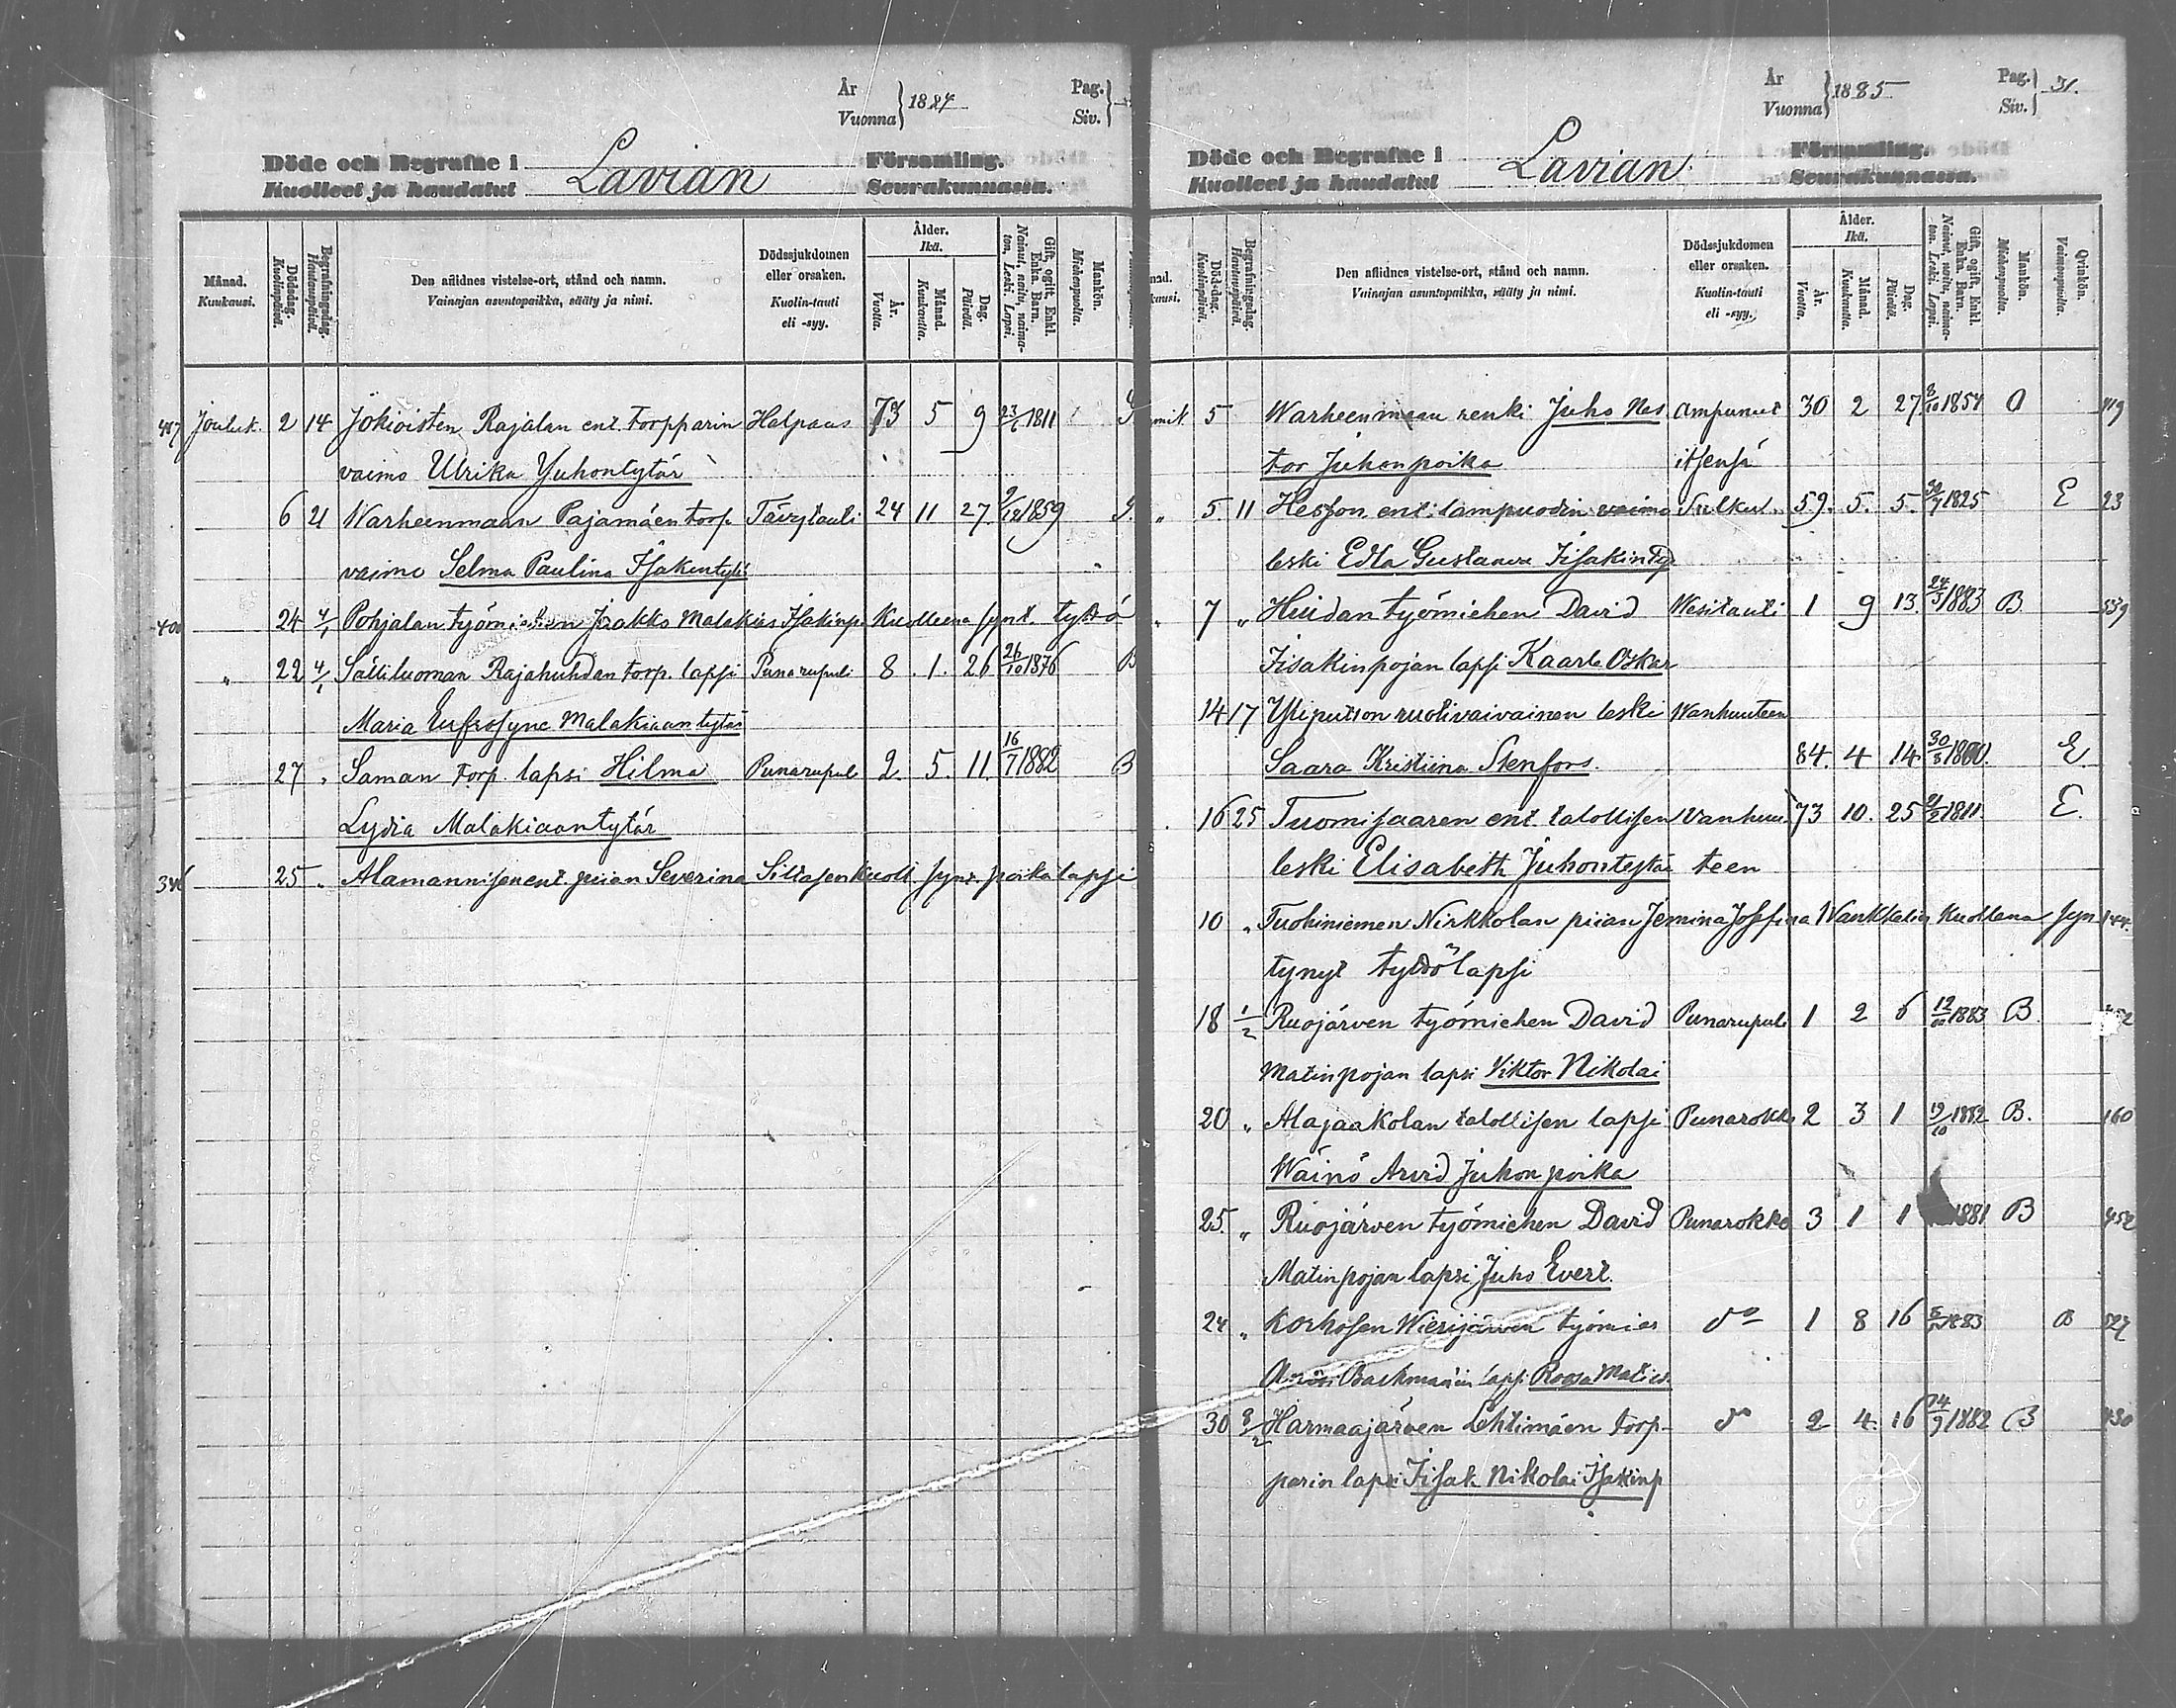 År
Vuonna } 1884
Pag.
Siv. }
Döde och Begrafne i
Kuolleet ja haudatut
Lavian
Församling.
Seurakunnassa.
Månad. Kuukausi.
Dödsdag. Kuolinpäivä.
Begrafningsdag. Hautauspäivä.
Den aflidnes vistelse-ort, stånd och namn.
Vainajan asuntopaikka, sääty ja nimi.
Dödssjukdomen eller orsaken.
Kuolin-tauti eli -syy.
Ålder. Ikä.
År. Vuotta.
Månad. Kuukautta.
Dag. Päivää.
Gift, ogift, Enkl. Enka. Barn.
Nainut, natu, naimaton. Leski. Lapsi.
Mankön. Miehenpuolta.
447 Jouluk. 2 14 Jokioisten Rajalan ent. torpparin Halpaus 73 5 9 23/6 1811
vaimo Ulrika Yuhontytär
6 21 Warheenmaan Pajamäen torp. Tävytauti 24 11 27 9/12 1859 G.
vaimo Selma Paulina Isakintytä
400 24 4/1 Pohjalan työmiehen Jaakko Malakias Isakinp. Kuolleena synt. tyttö
„ 22 4/1 Sätiluoman Rajahuhdan torp. lapsi Punarupuli 8 1 26 26/10 1876 B
Maria Eufrosyne Malakiaantytär
27 „ Saman torp. lapsi Hilma Punarupul 2 5 11 16/7 1882 B
Lydia Malakiaantytär
346 25 „ Alamannisen ent. piian Severina Siltasen kuoll. synt. poikalapsi
År
Vuonna } 1885
Pag.
Siv. } 31.
Döde och Begrafne i
Kuolleet ja haudatut
Lavian
Församling.
Seurakunnassa.
Dödsdag. Kuolinpäivä.
Begrafningsdag. Hautauspäivä.
Den aflidnes vistelse-ort, stånd och namn.
Vainajan asuntopaikka, sääty ja nimi.
Dödssjukdomen eller orsaken.
Kuolin-tauti eli -syy.
Ålder. Ikä.
År. Vuotta.
Månad. Kuukautta.
Dag. Päivää.
Gift, ogift, Enkl. Enka. Barn.
Nainut, natu, naimaton. Leski. Lapsi.
Mankön. Miehenpuolta.
Qvinkön. Vaimonpuolta.
5 Warheenmaan renki Juho Nes Ampunut 30 2 27 1854 O 419
tor Juhonpoika itsensä
„ 5 11 Hesson ent. lampuodin vaimo Sulkut. 59 5 5 30/7 1825 E 23
leski Edla Gustaava Iisakinty
„ 7 „ Huidan työmiehen David Wesitauti 1 9 13 24/3 1883 B 539
Iisakinpojan lapsi Kaarlo Oskar
14 17 Yliputron ruotivaivainen leski Wanhuuteen
Saara Kristiina Stenfors. 84 4 14 30/8 1800 E
16 25 Tuomisaaren ent. talollisen Vanhuu 73 10 25 21/2 1811 E.
leski Elisabeth Juhontytär teen
10 „ Tuohiniemen Nirkkolan piian Jemina Josefina Kuollena syn 144
tynyt tyttölapsi
18 1/2 Ruojärven työmiehen David Punarupuli 1 2 6 1883 B 452
Matinpojan lapsi Viktor Nikolai
20 „ Alajaakolan talollisen lapsi Punarokko 2 3 1 19/10 1882 B. 160
Wäinö Arvid Juhonpoika
25 „ Ruojärven työmiehen David Punarokko 3 1 1 1881 B 452
Matinpojan lapsi Juho Evert
24 „ Korhosen Wierijärven työmies do 1 8 16 1883 B
lapsi Roosa
30 8/2 Harmaajärven Lehtimäen torp- do 2 4 16 14/9 1882 B 430
parin lapsi Iisak Nikolai Isakinp